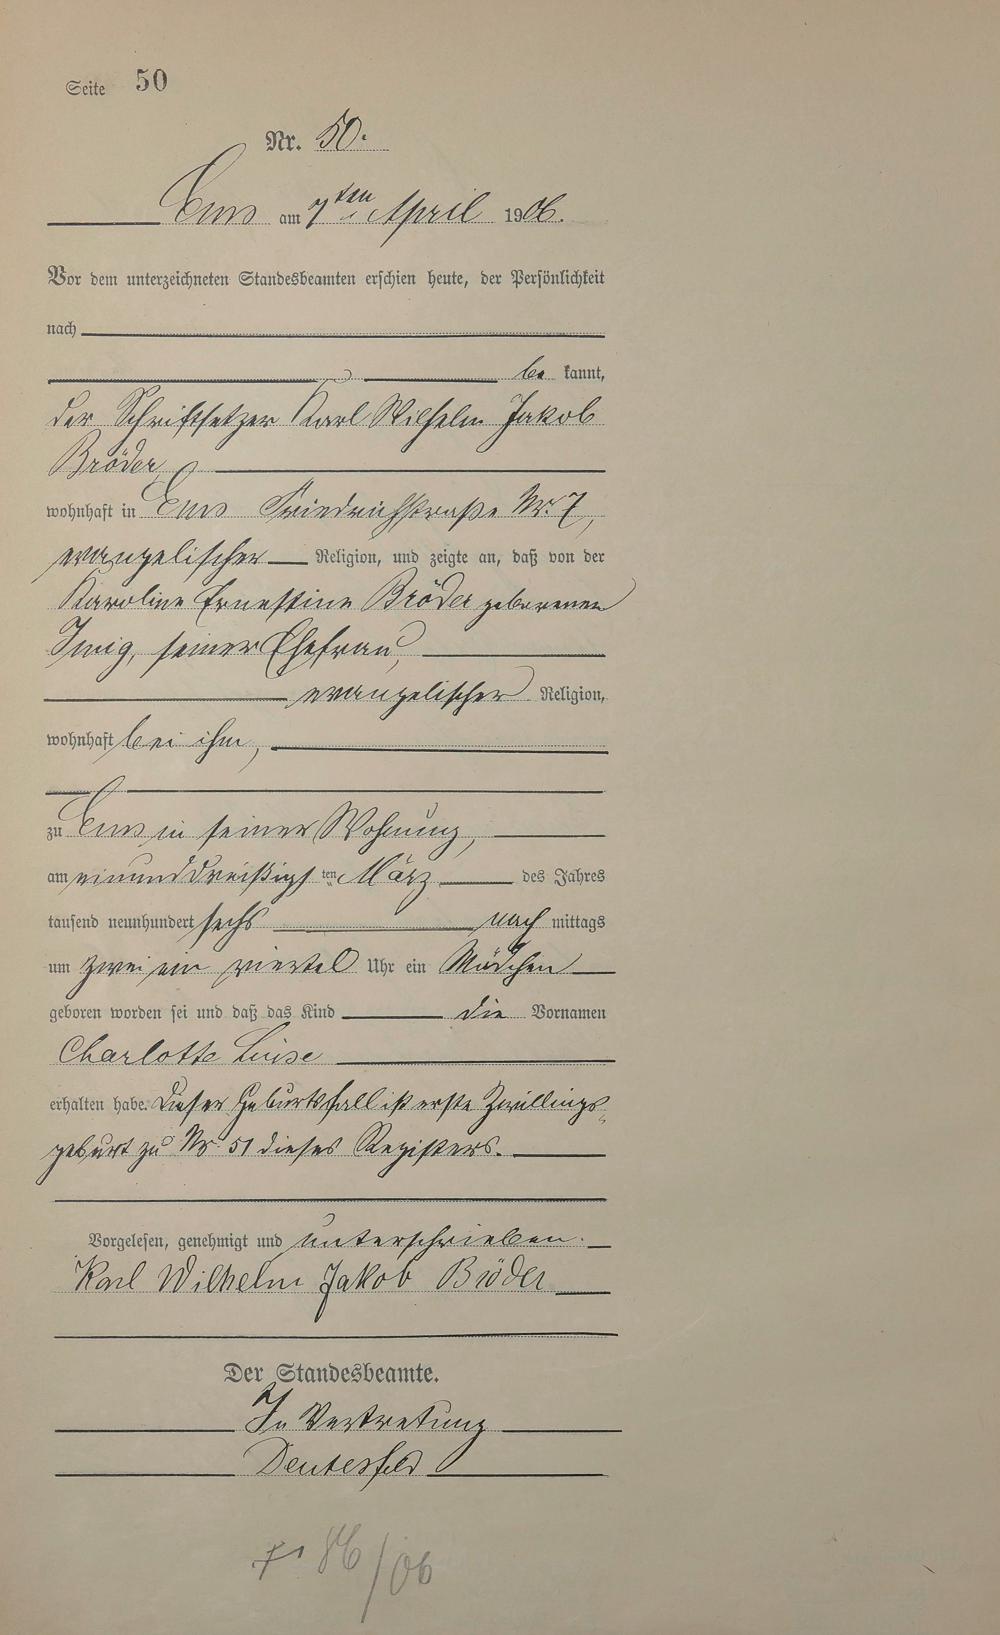 Seite 50
Nr. 50.
Ems am 7ten April 1906.
Vor dem unterzeichneten Standesbeamten erschien heute, der Persönlichkeit
nach
be kannt,
der Schriftsetzer Karl Wilhelm Jakob
Bröder
wohnhaft in Ems Friedrichstraße Nr. 7,
evangelischer Religion, und zeigte an, daß von der
Karoline Ernestine Bröder geborenen
Imig, seiner Ehefrau,
evangelischer Religion,
wohnhaft bei ihm,
zu Ems in seiner Wohnung,
am einunddreißigsten März des Jahres
tausend neunhundert sechs nach mittags
um zwei ein viertel Uhr ein Mädchen
geboren worden sei und daß das Kind die Vornamen
Charlotte Luise
erhalten habe. Dieser Geburtsfall ist erste Zwillings-
geburt zu Nr 51 dieses Registers.
Vorgelesen, genehmigt und unterschrieben.
Karl Wilhelm Jakob Bröder
Der Standesbeamte.
In Vertretung
86/06